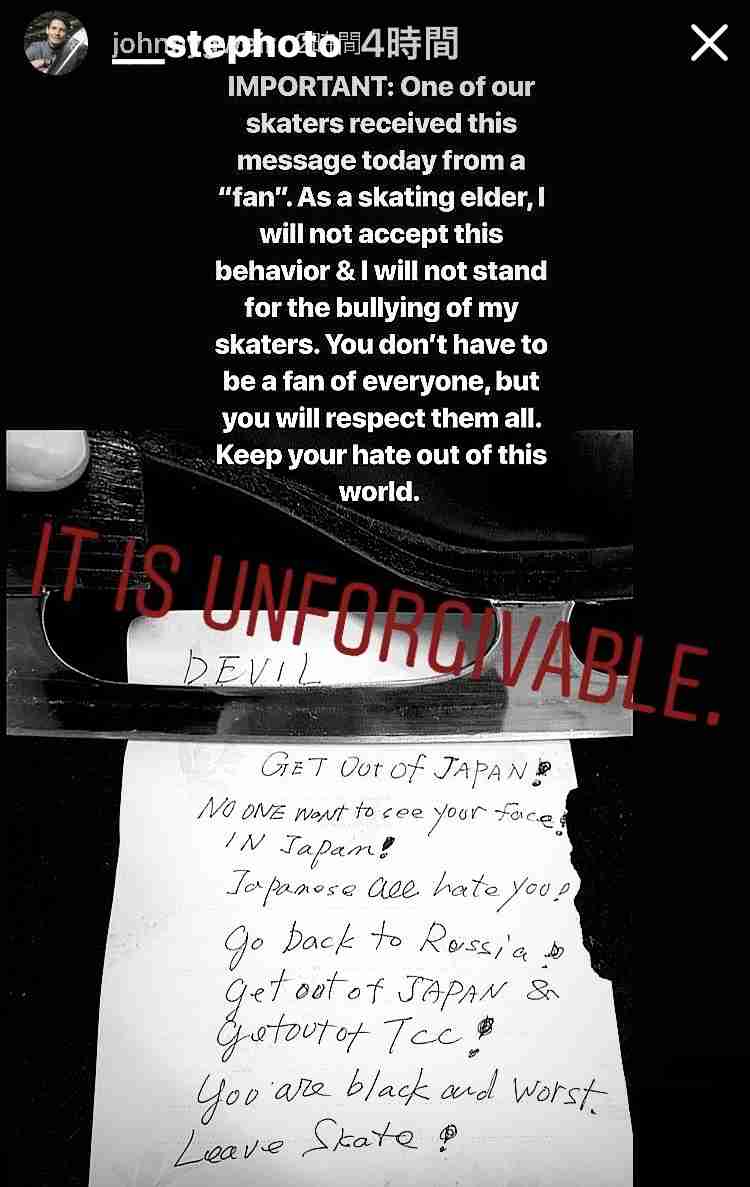 ___stephoto 4時間
IMPORTANT: One of our
skaters received this
message today from a
“fan”. As a skating elder, I
will not accept this
behavior & I will not stand
for the bullying of my
skaters. You don’t have to
be a fan of everyone, but
you will respect them all.
Keep your hate out of this
world.
IT IS UNFORGIVABLE.
DEVIL
GET Out of JAPAN!
NO ONE want to see your face!
IN Japan!
Japanese all hate you!
Go back to Russia!
get out of JAPAN &
Getout of TCC!
You are black and worst.
Leave Skate!